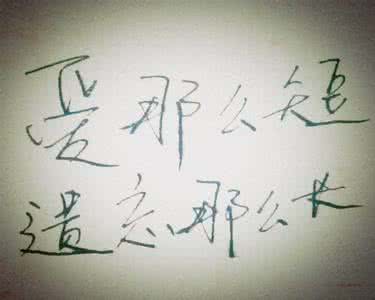 爱那么短
遗忘那么长